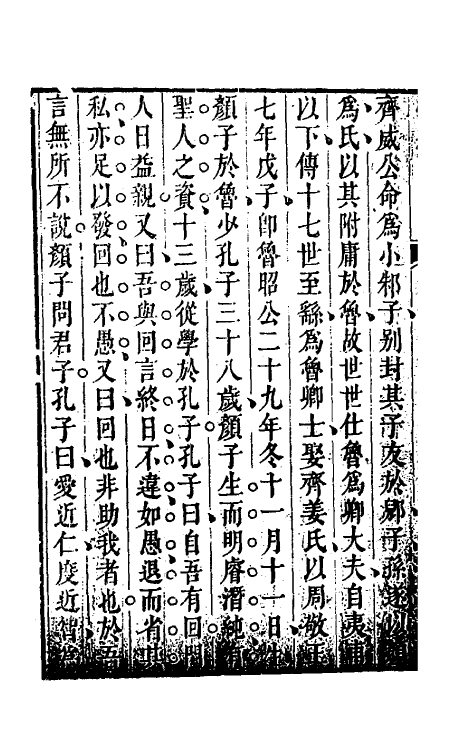 齊威公命爲小邾子别封其子友於郳子孫遂以顏
爲氏以其附庸於魯故世世仕魯爲卿大夫自夷甫
以下傳十七世至繇爲魯卿士娶齊姜氏以周敬王
七年戊子卽魯昭公二十九年冬十一月十一日生
顏子於魯少孔子三十八歲顏子生而明睿潛純有
聖人之資十三歲從學於孔子孔子曰自吾有回門
人日益親又曰吾與回言終日不違如愚退而省其
私亦足以發回也不愚又曰回也非助我者也於吾
言無所不說顏子問君子孔子曰愛近仁度近智